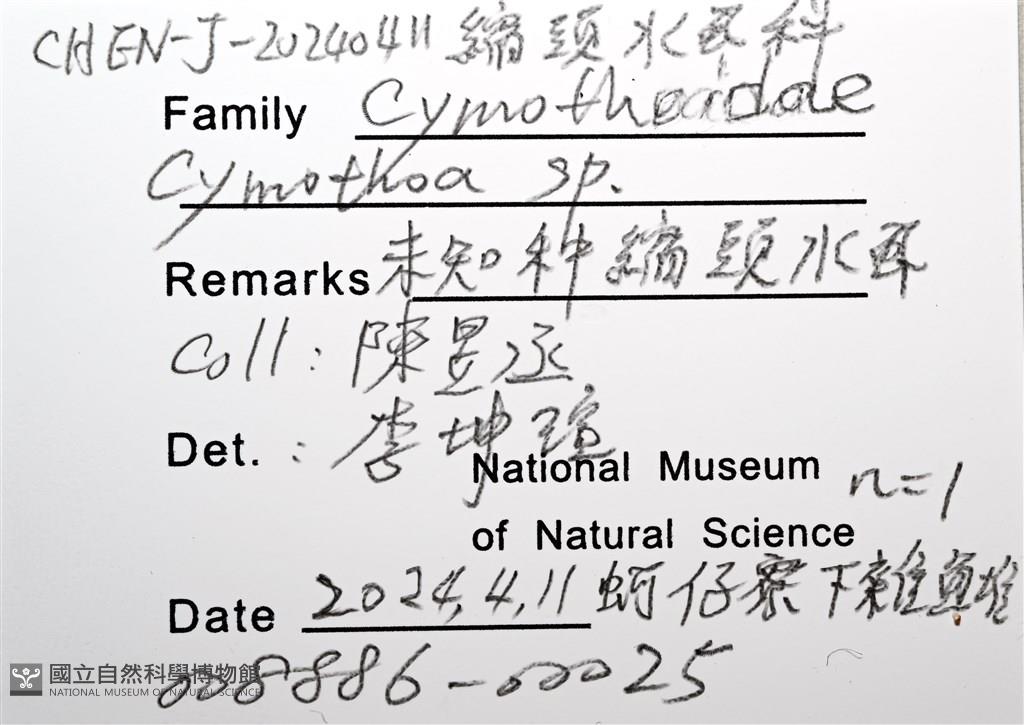 CHEN-J-20240411 縮頭水虱科
Family Cymothoidae
Cymothoa sp.
Remarks 未知种縮頭水虱
Coll : 陳昱丞
Det. : 李坤瑄
National Museum n=1
of Natural Science
Date 2024.4.11 蚵仔寮下雜魚堆
008886-00025
國立自然科學博物館
NATIONAL MUSEUM OF NATURAL SCIENCE